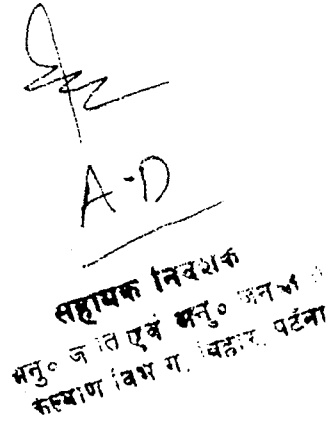 A-D
सहायक निदेशक
अनु० जाति एवं अनु० जन
कल्याण विभाग, बिहार, पटना